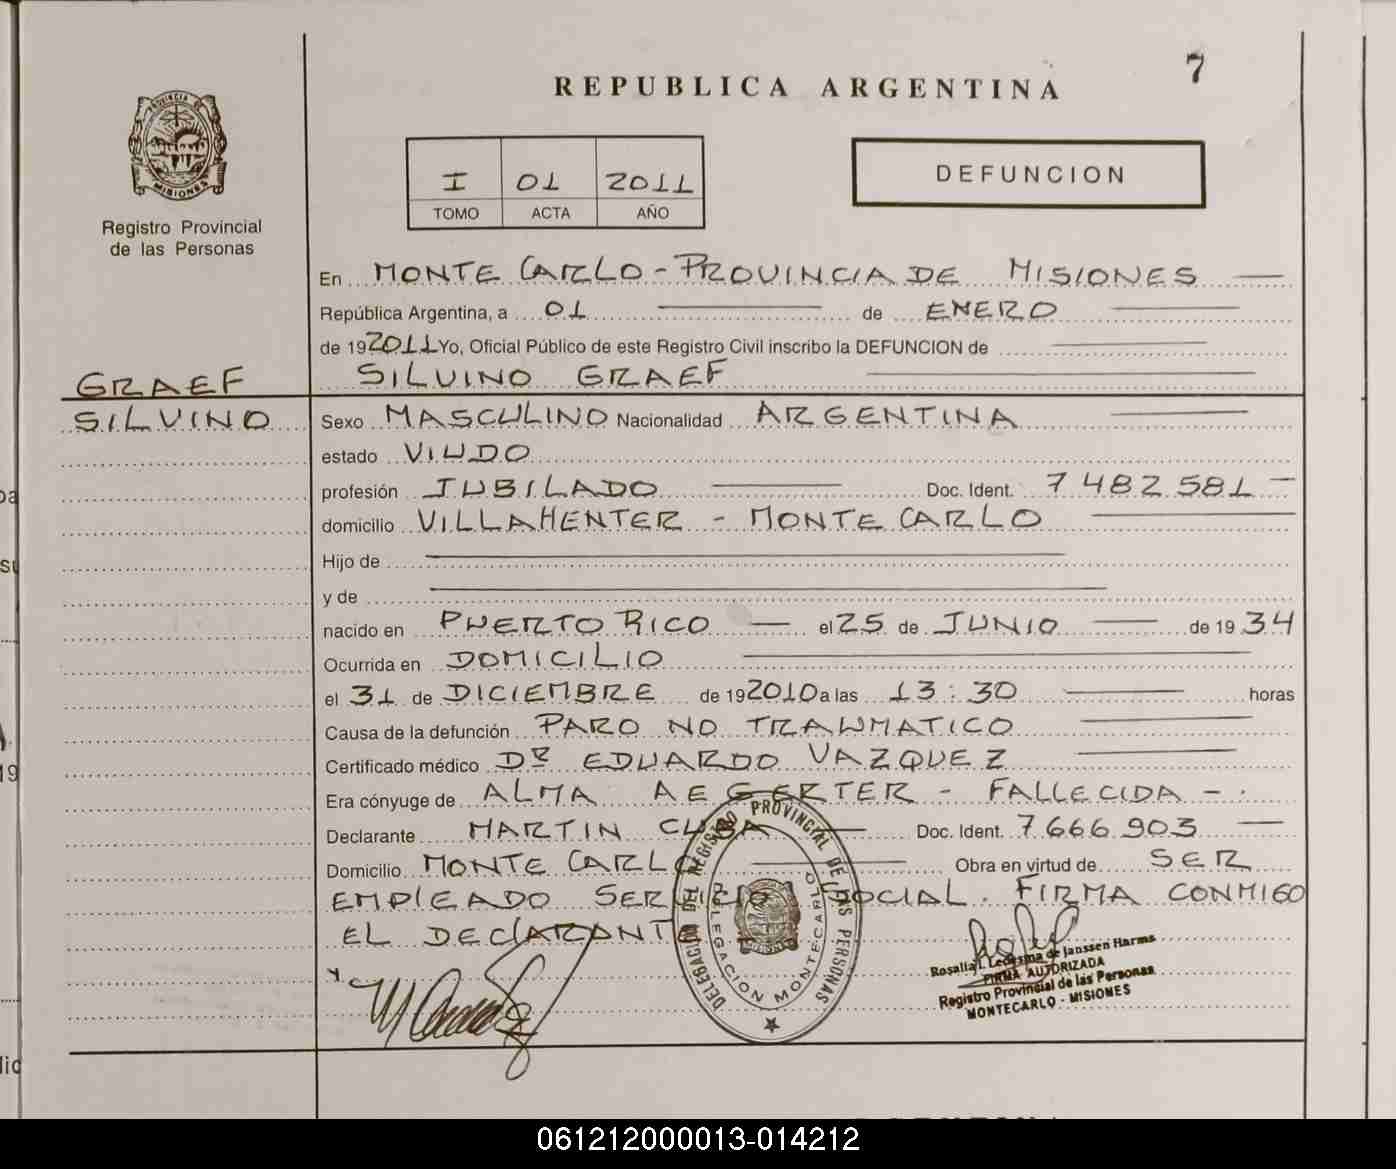 7
REPUBLICA ARGENTINA
PROVINCIA DE
MISIONES
Registro Provincial
de las Personas
I 01 2011
TOMO ACTA AÑO
DEFUNCION
En MONTE CARLO - PROVINCIA DE MISIONES
República Argentina, a 01 de ENERO
de 192011 Yo, Oficial Público de este Registro Civil inscribo la DEFUNCION de
SILVINO GRAEF
GRAEF
SILVINO
Sexo MASCULINO Nacionalidad ARGENTINA
estado VIUDO
profesión JUBILADO Doc. Ident. 7 482 581 -
domicilio VILLA HENTER - MONTE CARLO
Hijo de
y de
nacido en PUERTO RICO el 25 de JUNIO de 19 34
Ocurrida en DOMICILIO
el 31 de DICIEMBRE de 192010 a las 13:30 horas
Causa de la defunción PARO NO TRAUMATICO
Certificado médico Dr EDUARDO VAZQUEZ
Era cónyuge de ALMA AEGERTER - FALLECIDA -.
Declarante MARTIN CUBA Doc. Ident. 7 666 903
Domicilio MONTE CARLO Obra en virtud de SER
EMPLEADO SERVICIO SOCIAL. FIRMA CONMIGO
EL DECLARANTE
DELEGACION DEL REGISTRO PROVINCIAL DE LAS PERSONAS
DELEGACION MONTECARLO
Rosalia I. Ledesma de Janssen Harms
FIRMA AUTORIZADA
Registro Provincial de las Personas
MONTECARLO - MISIONES
061212000013-014212